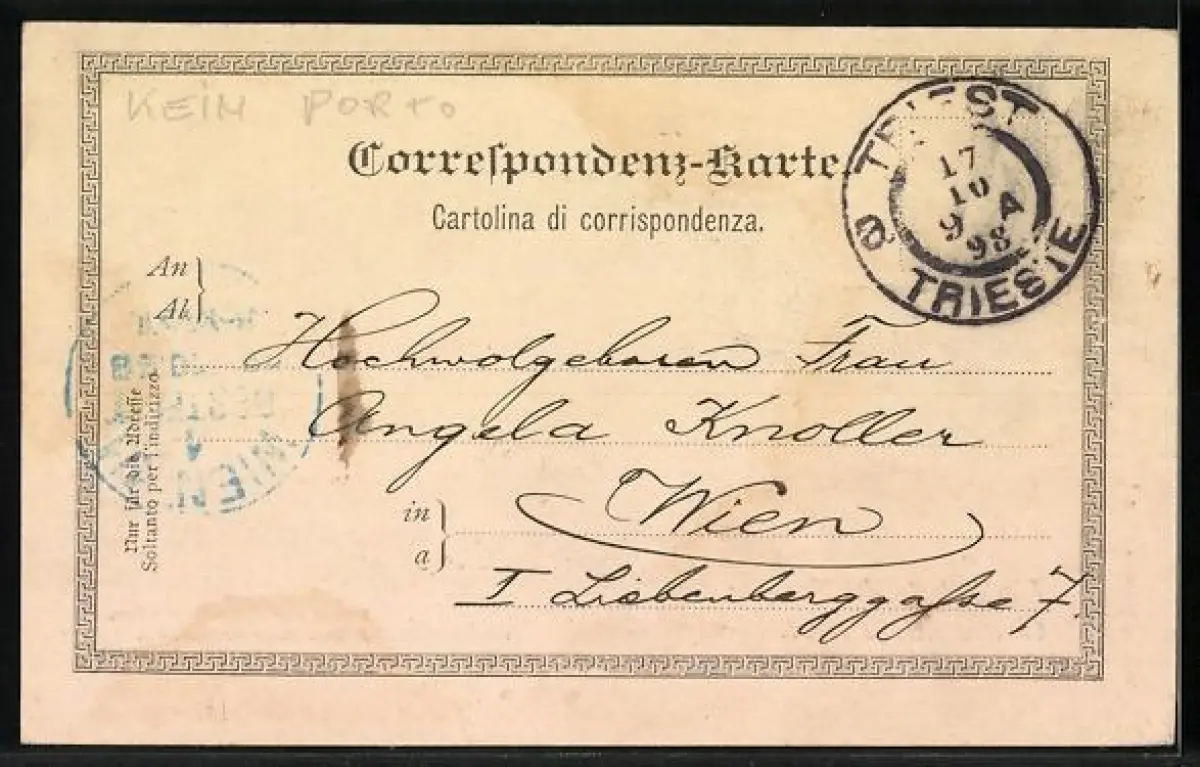 KEIN PORTO
Correſpondenz-Karte.
Cartolina di corrispondenza.
TRIEST
17
10
9 A
98
TRIESTE
An
Al
Hochwolgeboren Frau
Angela Knoller
in
a
Wien
I Liebenberggaſse 7.
Nur für die Adreſſe
Soltanto per l'indirizzo
WIEN